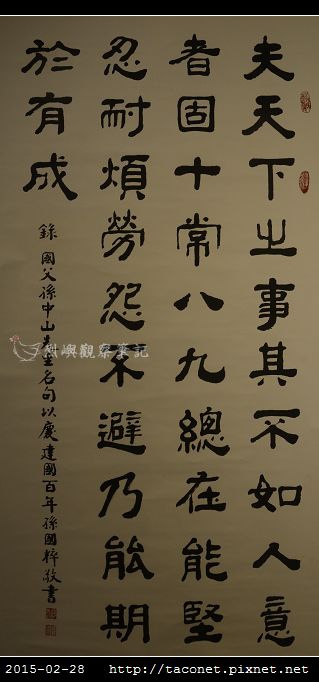 夫天下之事其不如人意
者固十常八九總在能堅
忍耐煩勞怨不避乃能期
於有成
錄國父孫中山先生名句以慶建國百年孫國粹敬書
烈嶼觀察筆記
2015-02-28 http://taconet.pixnet.net